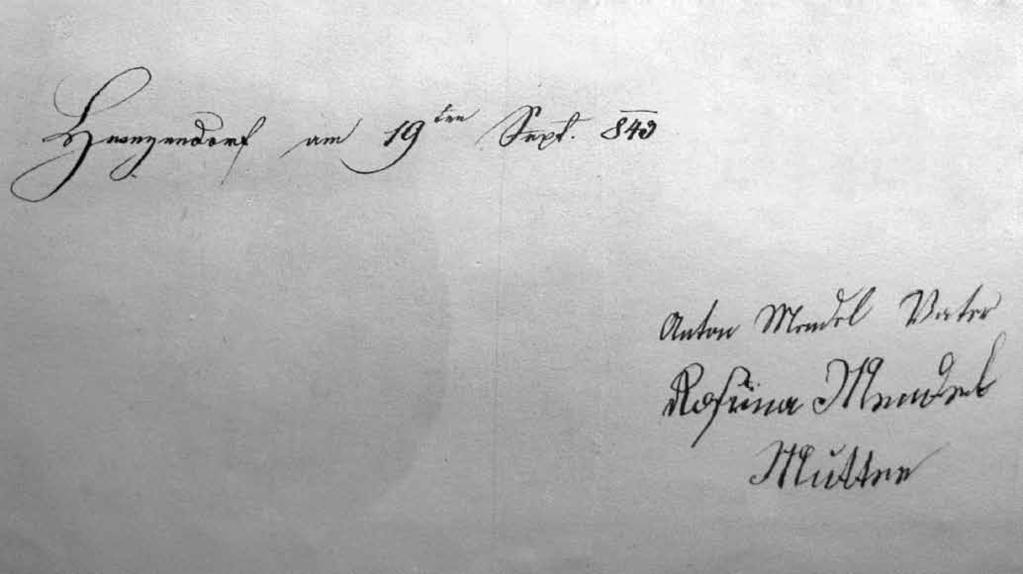 Heinzendorf am 19ten Sept. 843
Anton Mendel Vater
Rosina Mendel
Mutter